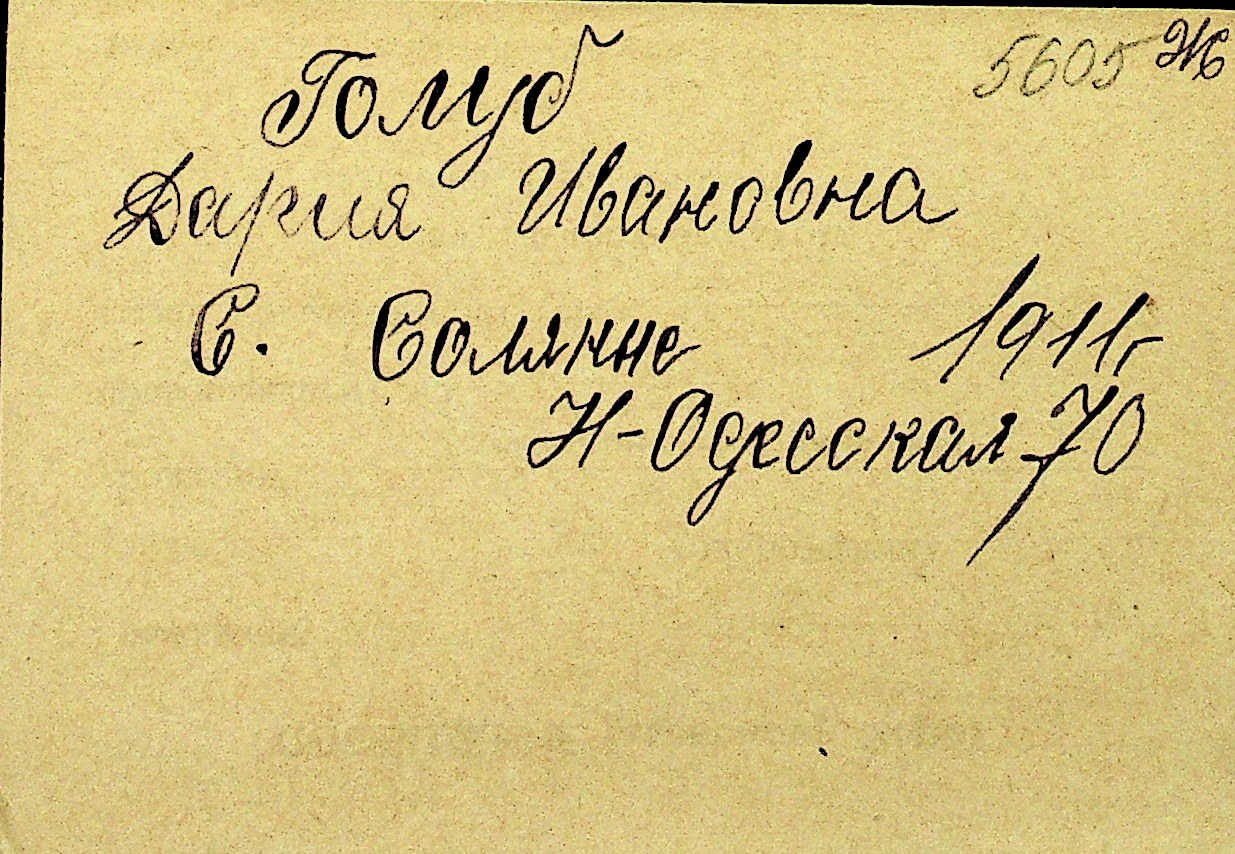 5605 Ж
Голуб
Дария Ивановна
С. Солянне 1911г
Н-Одесская 70